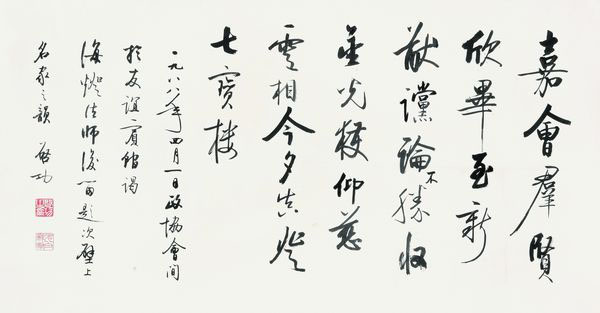 嘉會羣賢
欣畢至新
猷讜論不勝收
金光獲仰慈
雲相今夕真登
七寶樓
一九八八年四月一日政協會間
於友誼賓館謁
海燈法師後留題次壁上
名家之韻 啟功